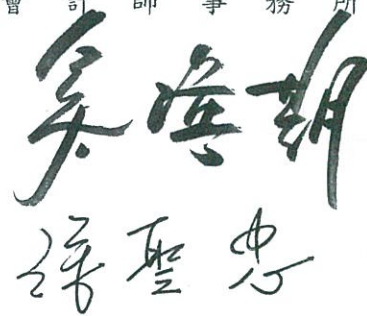 會計師事務所
吳漢期
徐聖忠